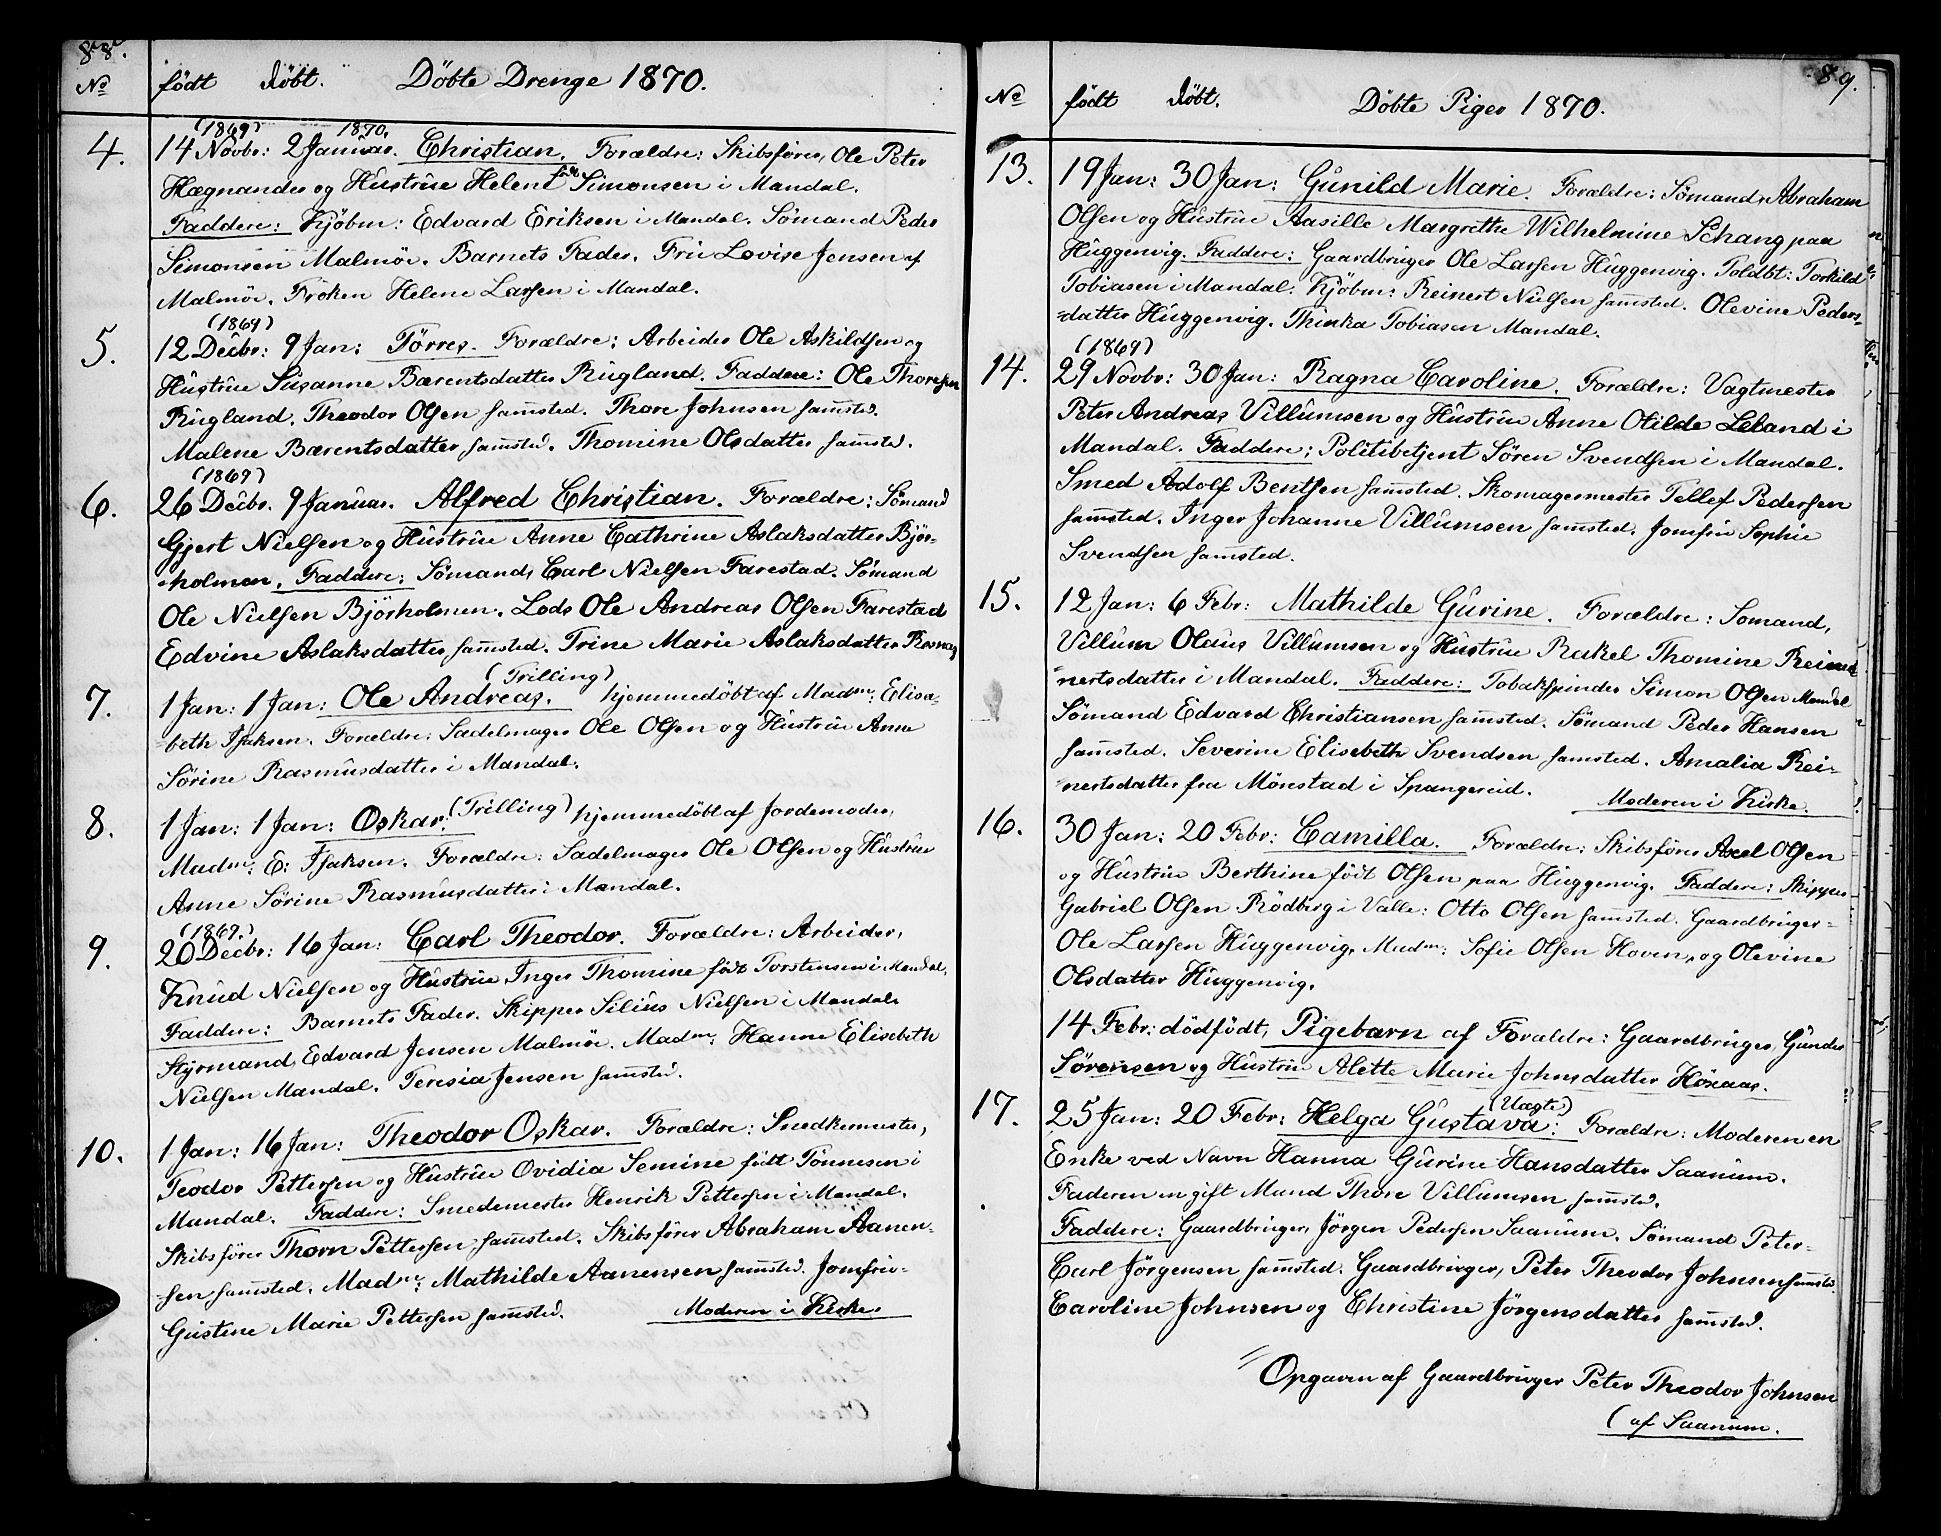 88.
No födt döbt. Döbte Drenge 1870.
(1869) 1870.
4. 14 Novbr: 2 Januar. Christian. Forældre: Skibsförer, Ole Peter
Hægnander og Hustrue Helene födt Simonsen i Mandal.
Faddere: Kjöbm: Edvard Eriksen i Mandal. Sömand Peder
Simonsen Malmöe. Barnets Fader. Frü Lovise Jensen af
Malmöe. Fröken Helene Larsen i Mandal.
(1869)
5. 12 Decbr: 9 Jan: Törres. Forældre: Arbeider Ole Askildsen og
Hustrue Susanne Bærentsdatter Rugland. Faddere: Ole Thoresen
Rugland. Theodor Olsen samsted. Thore Johnsen samsted.
Malene Bærentsdatter samsted. Thomine Olsdatter samsted.
(1869)
6. 26 Decbr. 9 Januar. Alfred Christian. Forældre: Sömand
Gjert Nielsen og Hustrue Anne Cathrine Aslaksdatter Björ-
-holmen. Faddere: Sömand, Carl Nielsen Farestad. Sömand
Ole Nielsen Björholmen. Lods Ole Andreas Olsen Farestad
Edvine Aslaksdatter samsted. Trine Marie Aslaksdatter
(Trilling)
7. 1 Jan: 1 Jan: Ole Andreas. hjemmedöbt af Madm: Elisa-
-beth Isaksen. Forældre: Sadelmager Ole Olsen og Hustrue Anne
Sörine Rasmusdatter i Mandal.
8. 1 Jan: 1 Jan: Oskar. (Trilling) hjemmedöbt af Jordemoder,
Madm: E: Isaksen. Forældre: Sadelmager Ole Olsen og Hustrue
Anne Sörine Rasmusdatter i Mandal.
(1869.)
9. 20 Decbr: 16 Jan: Carl Theodor. Forældre: Arbeider,
Knud Nielsen og Hustrue Inger Thomine födt Torstensen i Mandal.
Faddere: Barnets Fader. Skipper Silius Nielsen i Mandal.
Styrmand, Edvard Jensen Malmöe. Madm: Hanne Elisebeth
Nielsen Mandal. Teresia Jensen samsted.
10. 1 Jan: 16 Jan: Theodor Oskar. Forældre: Snedkermester,
Teodor Pettersen og Hustrue Ovidia Semine födt Tönnesen i
Mandal. Faddere: Smedemester Henrik Pettersen i Mandal.
Skibsförer Thorn Pettersen samsted. Skibsförer Abraham Aanen-
sen samsted. Madm: Mathilde Aanensen samsted. Jomfrue
Gustine Marie Pettersen samsted. Moderen i Kirke.
89.
No födt döbt. Döbte Piger 1870.
13. 19 Jan: 30 Jan: Gunild Marie. Forældre: Sömand, Abraham
Olsen og Hustrue Aasille Margrethe Wilhelmine Schang paa
Huggenvig. Faddere: Gaardbruger Ole Larsen Huggenvig. Toldbt: Torkild
Tobiasen i Mandal. Kjöbm: Reinert Nielsen samsted. Olevine Peders-
-datter Huggenvig. Thinka Tobiasen Mandal.
(1869)
14. 29 Novbr: 30 Jan: Ragna Caroline. Forældre: Vagtmester
Peter Andreas Villumsen og Hustrue Anne Otilde Leland i
Mandal. Faddere: Politibetjent Sören Svendsen i Mandal.
Smed Adolf Bentsen samsted. Skomagermester Tellef Pedersen
samsted. Inger Johanne Villumsen samsted. Jomfrü Sophie
Svendsen samsted.
15. 12 Jan: 6 Febr: Mathilde Gurine. Forældre: Sömand,
Villum Olaus Villumsen og Hustrue Rakel Thomine Rei-
-nertsdatter i Mandal. Faddere: Tobakspinder Simon Olsen Mandal
Sömand Edvard Christiansen samsted. Sömand Peder Hansen
samsted. Severine Elisebeth Svendsen samsted. Amalia Rei-
-nertsdatter fra Mönestad i Spangereid. Moderen i Kirke.
16. 30 Jan: 20 Febr: Camilla. Forældre: Skibsförer Axel Olsen
og Hustrue Berthine födt Olsen paa Huggenvig. Faddere: Skipper
Gabriel Olsen Rödberg i Valle: Otto Olsen samsted. Gaardbruger
Ole Larsen Huggenvig. Madm: Sofie Olsen Hoven, og Olevine
Olsdatter Huggenvig.
14 Febr: dödfödt, Pigebarn af Forældre: Gaardbruger, Gunder
Sörensen og Hustrue Alette Marie Johnsdatter Höxaas.
(Uægte)
17. 25 Jan: 20 Febr: Helga Gustava: Forældre: Moderen en
Enke ved Navn Hanna Gurine Hansdatter Saanum.
Faderen en gift Mand Thore Villumsen samsted.
Faddere: Gaardbruger, Jörgen Pedersen Saanum. Sömand Peter-
Carl Jörgensen samsted. Gaardbruger, Peter Theodor Johnsen samsted.
Caroline Johnsen og Christine Jörgensdatter samsted.
Opgaven af Gaardbruger Peter Theodor Johnsen
(af Saanum.